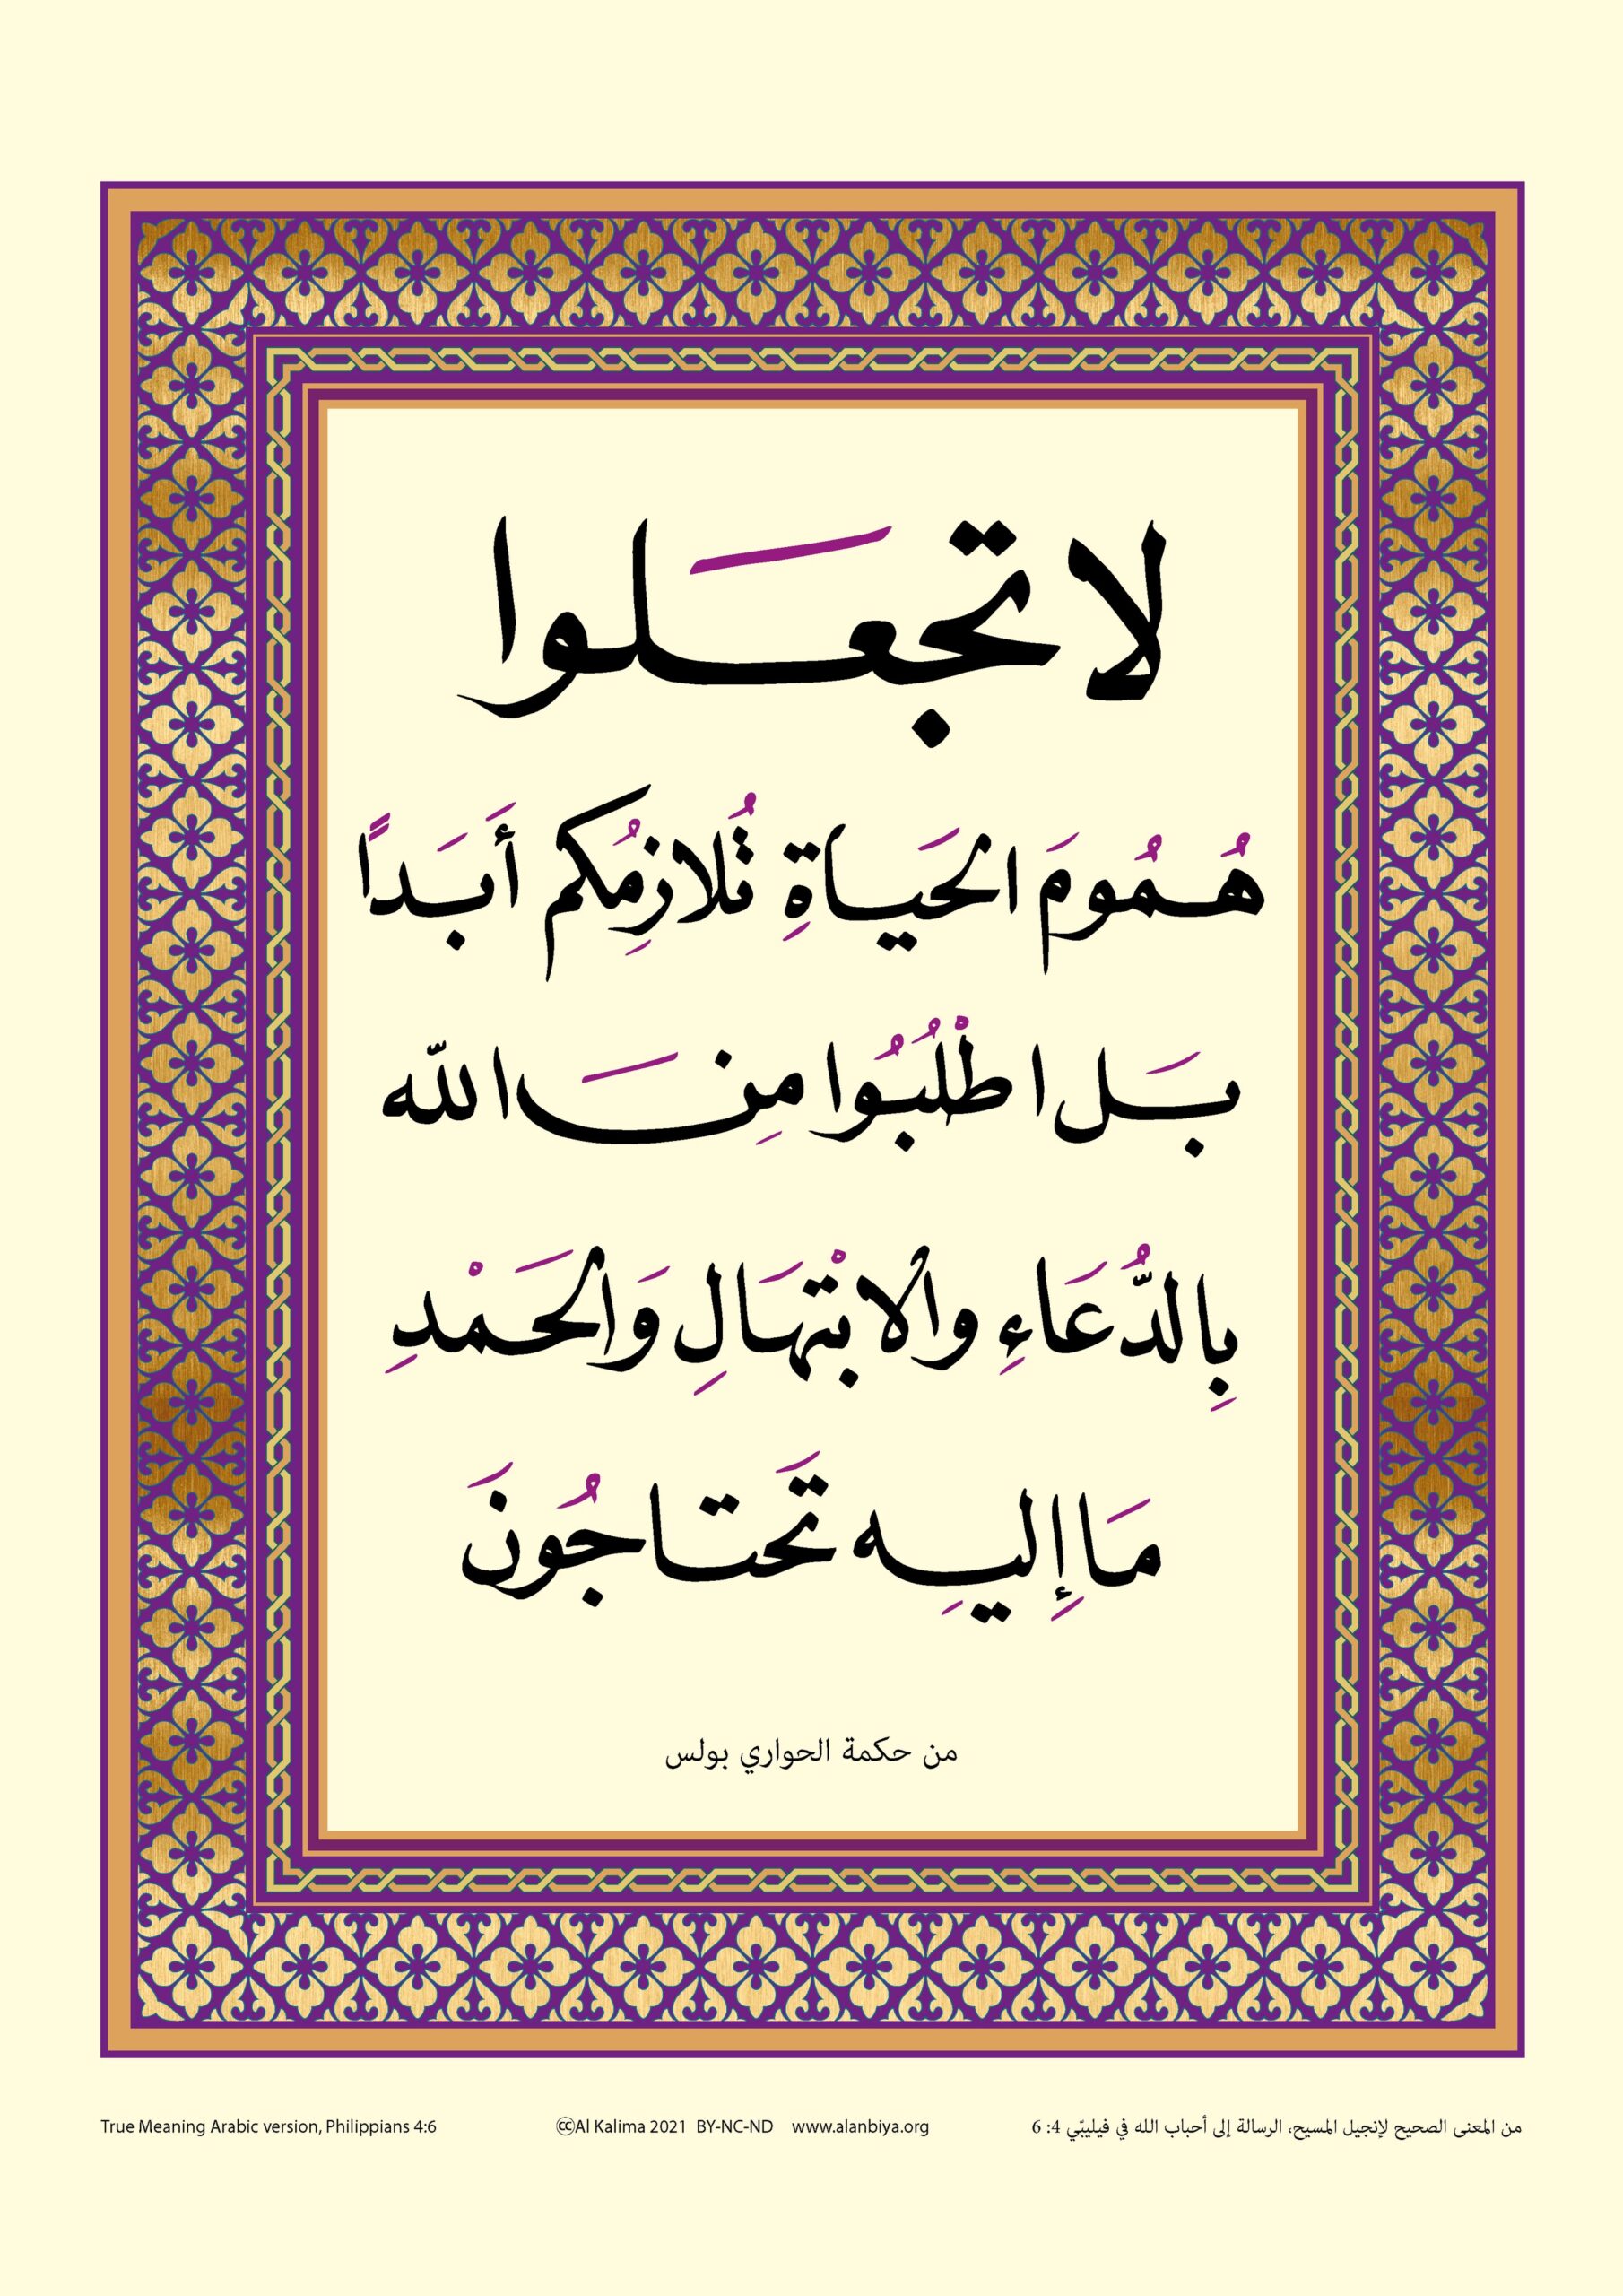 لا تجعَلوا
هُمُومَ الحَيَاةِ تُلازِمُكم أَبَداً
بَل اطْلُبُوا مِنَ الله
بِالدُّعَاءِ والابْتهَالِ وَالحَمْدِ
مَا إِليِه تَحتاجُونَ
من حكمة الحواري بولس
True Meaning Arabic version, Philippians 4:6 🄭Al Kalima 2021 BY-NC-ND www.alanbiya.org من المعنى الصحيح لإنجيل المسيح، الرسالة إلى أحباب الله في فيليبّي 4: 6